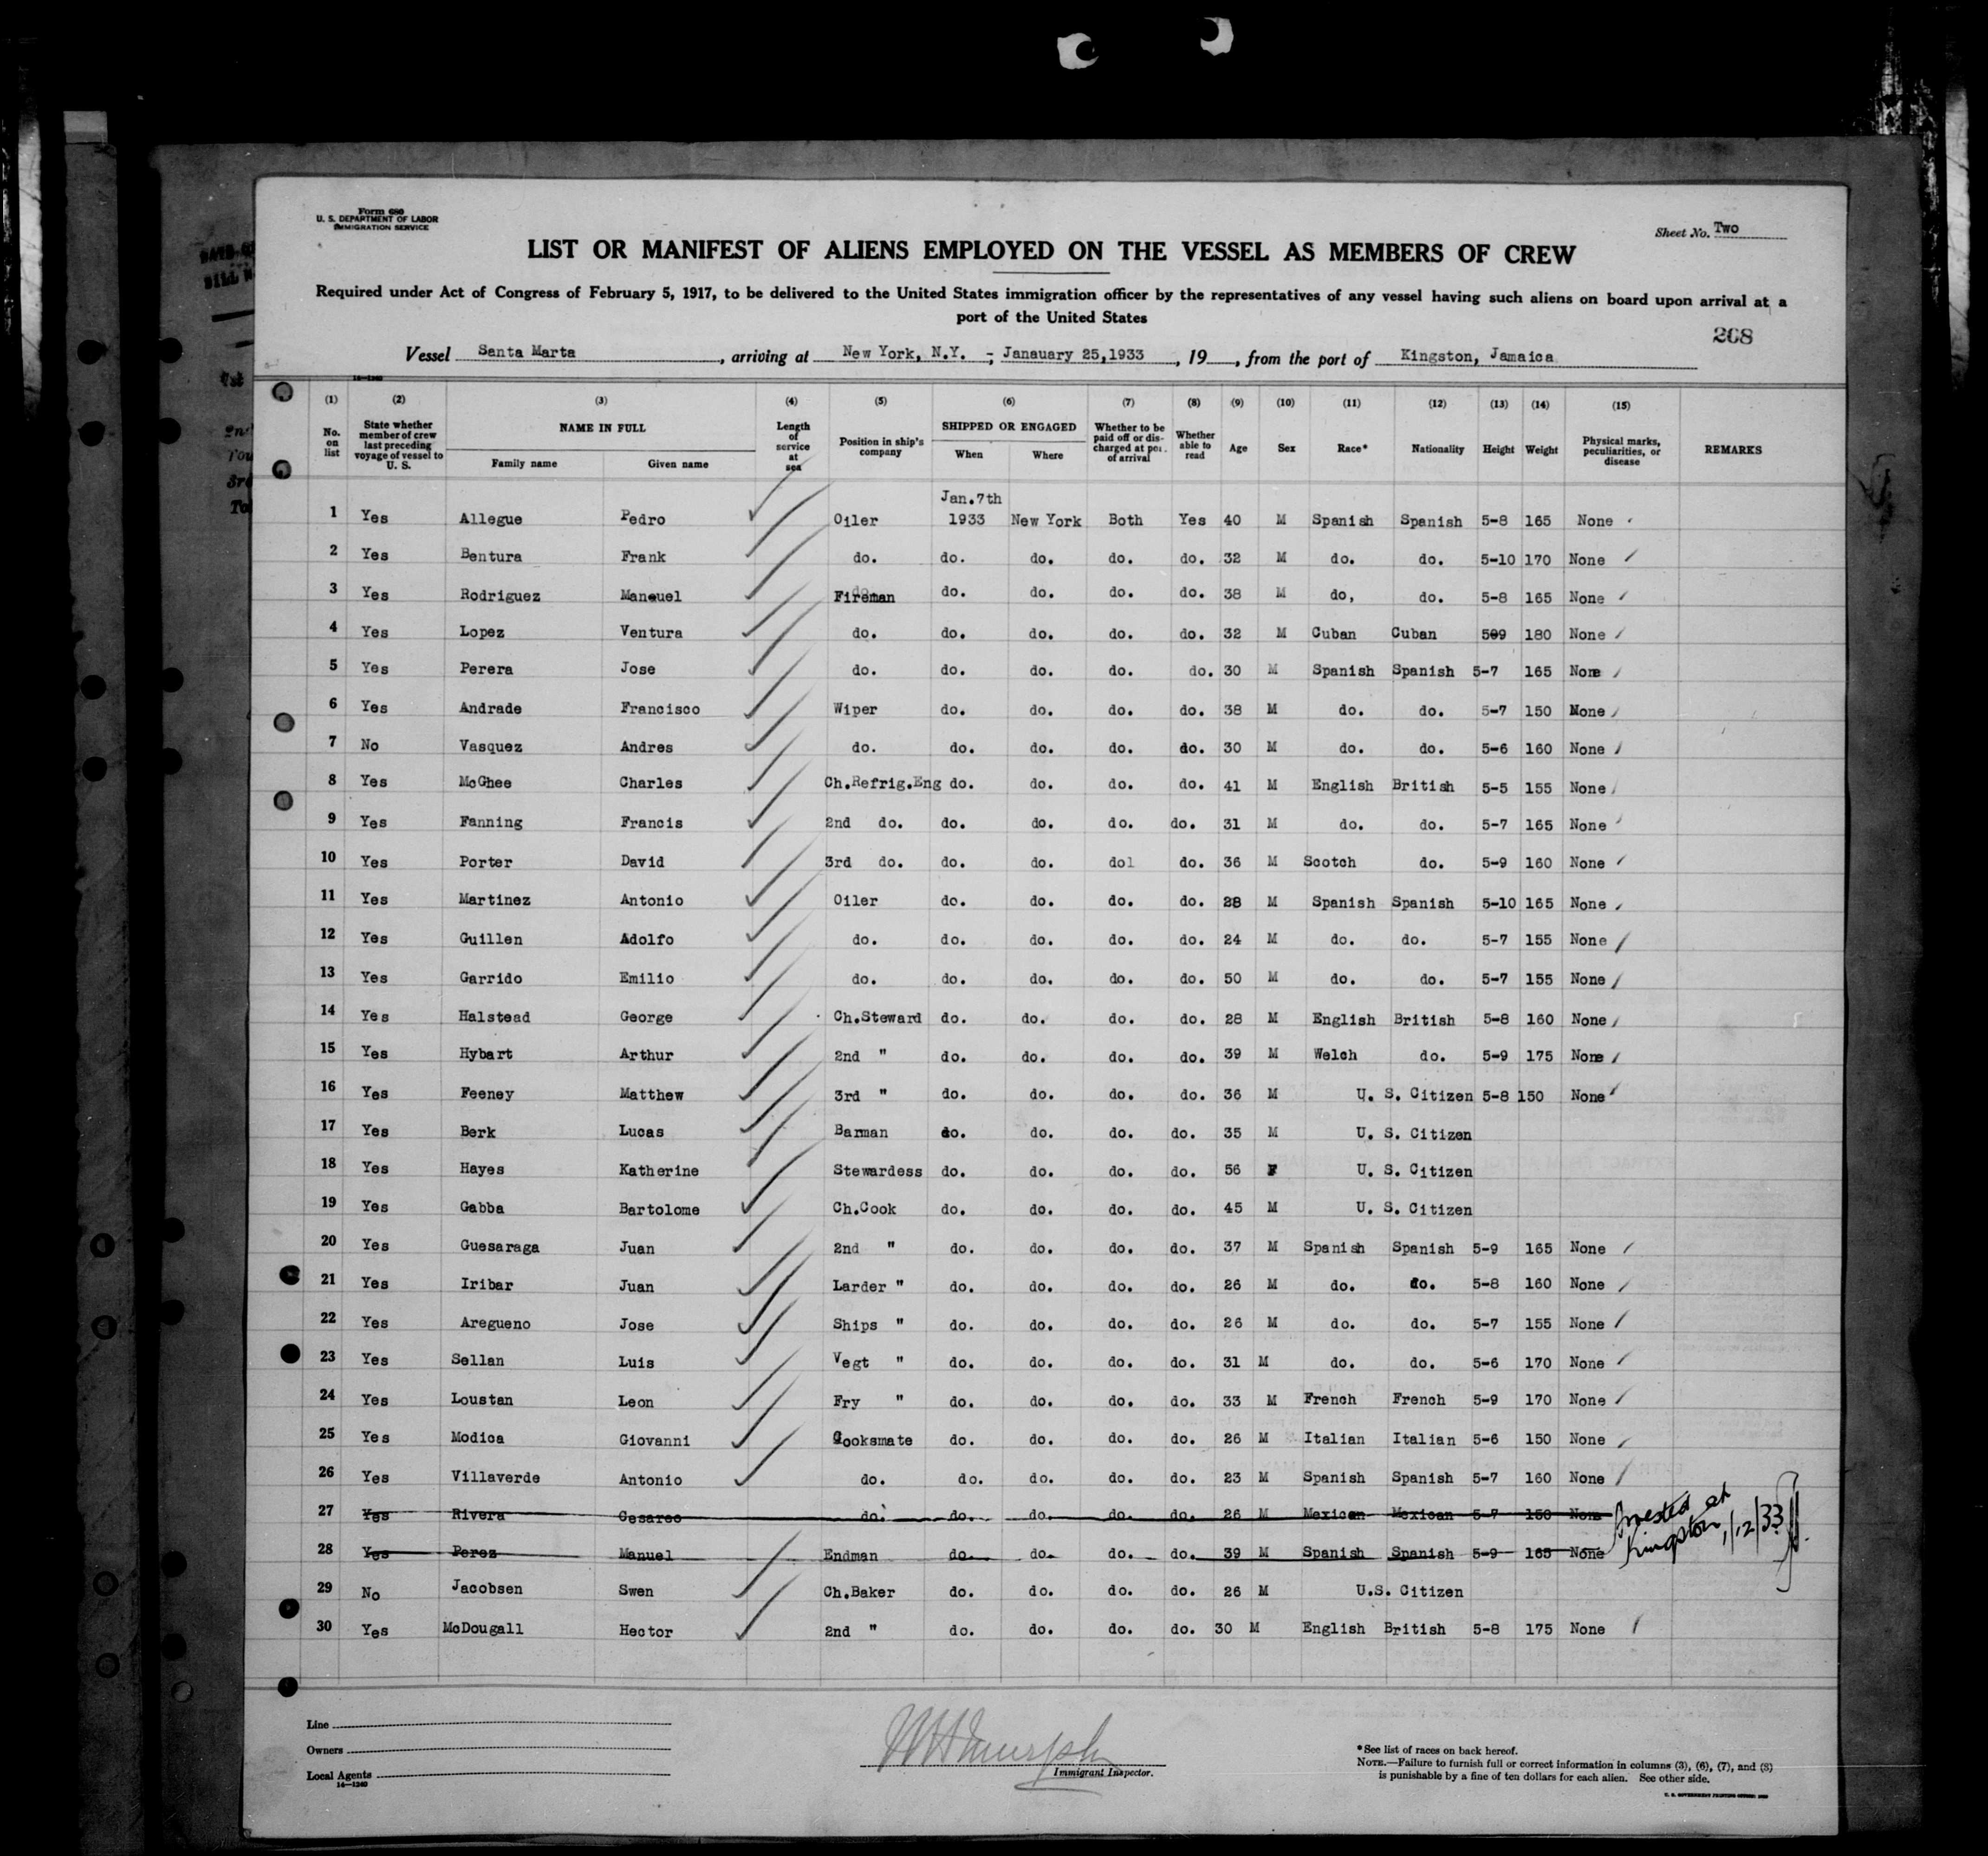 Form 680
U. S. DEPARTMENT OF LABOR
IMMIGRATION SERVICE
Sheet No. Two
LIST OR MANIFEST OF ALIENS EMPLOYED ON THE VESSEL AS MEMBERS OF CREW
Required under Act of Congress of February 5, 1917, to be delivered to the United States immigration officer by the representatives of any vessel having such aliens on board upon arrival at a
port of the United States
268
Vessel Santa Marta, arriving at New York, N.Y. - Janauary 25,1933, 19, from the port of Kingston, Jamaica
(1) (2) (3) (4) (5) (6) (7) (8) (9) (10) (11) (12) (13) (14) (15)
No. on list State whether member of crew last preceding voyage of vessel to U. S. NAME IN FULL Family name Given name Length of service at sea Position in ship's company SHIPPED OR ENGAGED When Where Whether to be paid off or discharged at port of arrival Whether able to read Age Sex Race* Nationality Height Weight Physical marks, peculiarities, or disease REMARKS
Jan.7th
1 Yes Allegue Pedro Oiler 1933 New York Both Yes 40 M Spanish Spanish 5-8 165 None
2 Yes Bentura Frank do. do. do. do. do. 32 M do. do. 5-10 170 None
3 Yes Rodriguez Maneuel Fireman do. do. do. do. 38 M do, do. 5-8 165 None
4 Yes Lopez Ventura do. do. do. do. do. 32 M Cuban Cuban 509 180 None
5 Yes Perera Jose do. do. do. do. do. 30 M Spanish Spanish 5-7 165 None
6 Yes Andrade Francisco Wiper do. do. do. do. 38 M do. do. 5-7 150 None
7 No Vasquez Andres do. do. do. do. do. 30 M do. do. 5-6 160 None
8 Yes McGhee Charles Ch.Refrig.Eng do. do. do. do. 41 M English British 5-5 155 None
9 Yes Fanning Francis 2nd do. do. do. do. do. 31 M do. do. 5-7 165 None
10 Yes Porter David 3rd do. do. do. dol do. 36 M Scotch do. 5-9 160 None
11 Yes Martinez Antonio Oiler do. do. do. do. 28 M Spanish Spanish 5-10 165 None
12 Yes Guillen Adolfo do. do. do. do. do. 24 M do. do. 5-7 155 None
13 Yes Garrido Emilio do. do. do. do. do. 50 M do. do. 5-7 155 None
14 Yes Halstead George Ch.Steward do. do. do. do. 28 M English British 5-8 160 None
15 Yes Hybart Arthur 2nd " do. do. do. do. 39 M Welch do. 5-9 175 None
16 Yes Feeney Matthew 3rd " do. do. do. do. 36 M U. S. Citizen 5-8 150 None
17 Yes Berk Lucas Barman do. do. do. do. 35 M U. S. Citizen
18 Yes Hayes Katherine Stewardess do. do. do. do. 56 F U. S. Citizen
19 Yes Gabba Bartolome Ch.Cook do. do. do. do. 45 M U. S. Citizen
20 Yes Guesaraga Juan 2nd " do. do. do. do. 37 M Spanish Spanish 5-9 165 None
21 Yes Iribar Juan Larder " do. do. do. do. 26 M do. do. 5-8 160 None
22 Yes Aregueno Jose Ships " do. do. do. do. 26 M do. do. 5-7 155 None
23 Yes Sellan Luis Vegt " do. do. do. do. 31 M do. do. 5-6 170 None
24 Yes Loustan Leon Fry " do. do. do. do. 33 M French French 5-9 170 None
25 Yes Modica Giovanni Cooksmate do. do. do. do. 26 M Italian Italian 5-6 150 None
26 Yes Villaverde Antonio do. do. do. do. do. 23 M Spanish Spanish 5-7 160 None
27 Yes Rivera Cesareo do. do. do. do. do. 26 M Mexican Mexican 5-7 150 None Arrested at
28 Yes Perez Manuel Endman do. do. do. do. 39 M Spanish Spanish 5-9 165 None Kingston, 1/12/33
29 No Jacobsen Swen Ch.Baker do. do. do. do. 26 M U.S. Citizen
30 Yes McDougall Hector 2nd " do. do. do. do. 30 M English British 5-8 175 None
Line
Owners
Local Agents
14—1240
Immigrant Inspector.
*See list of races on back hereof.
NOTE.—Failure to furnish full or correct information in columns (3), (6), (7), and (8)
is punishable by a fine of ten dollars for each alien. See other side.